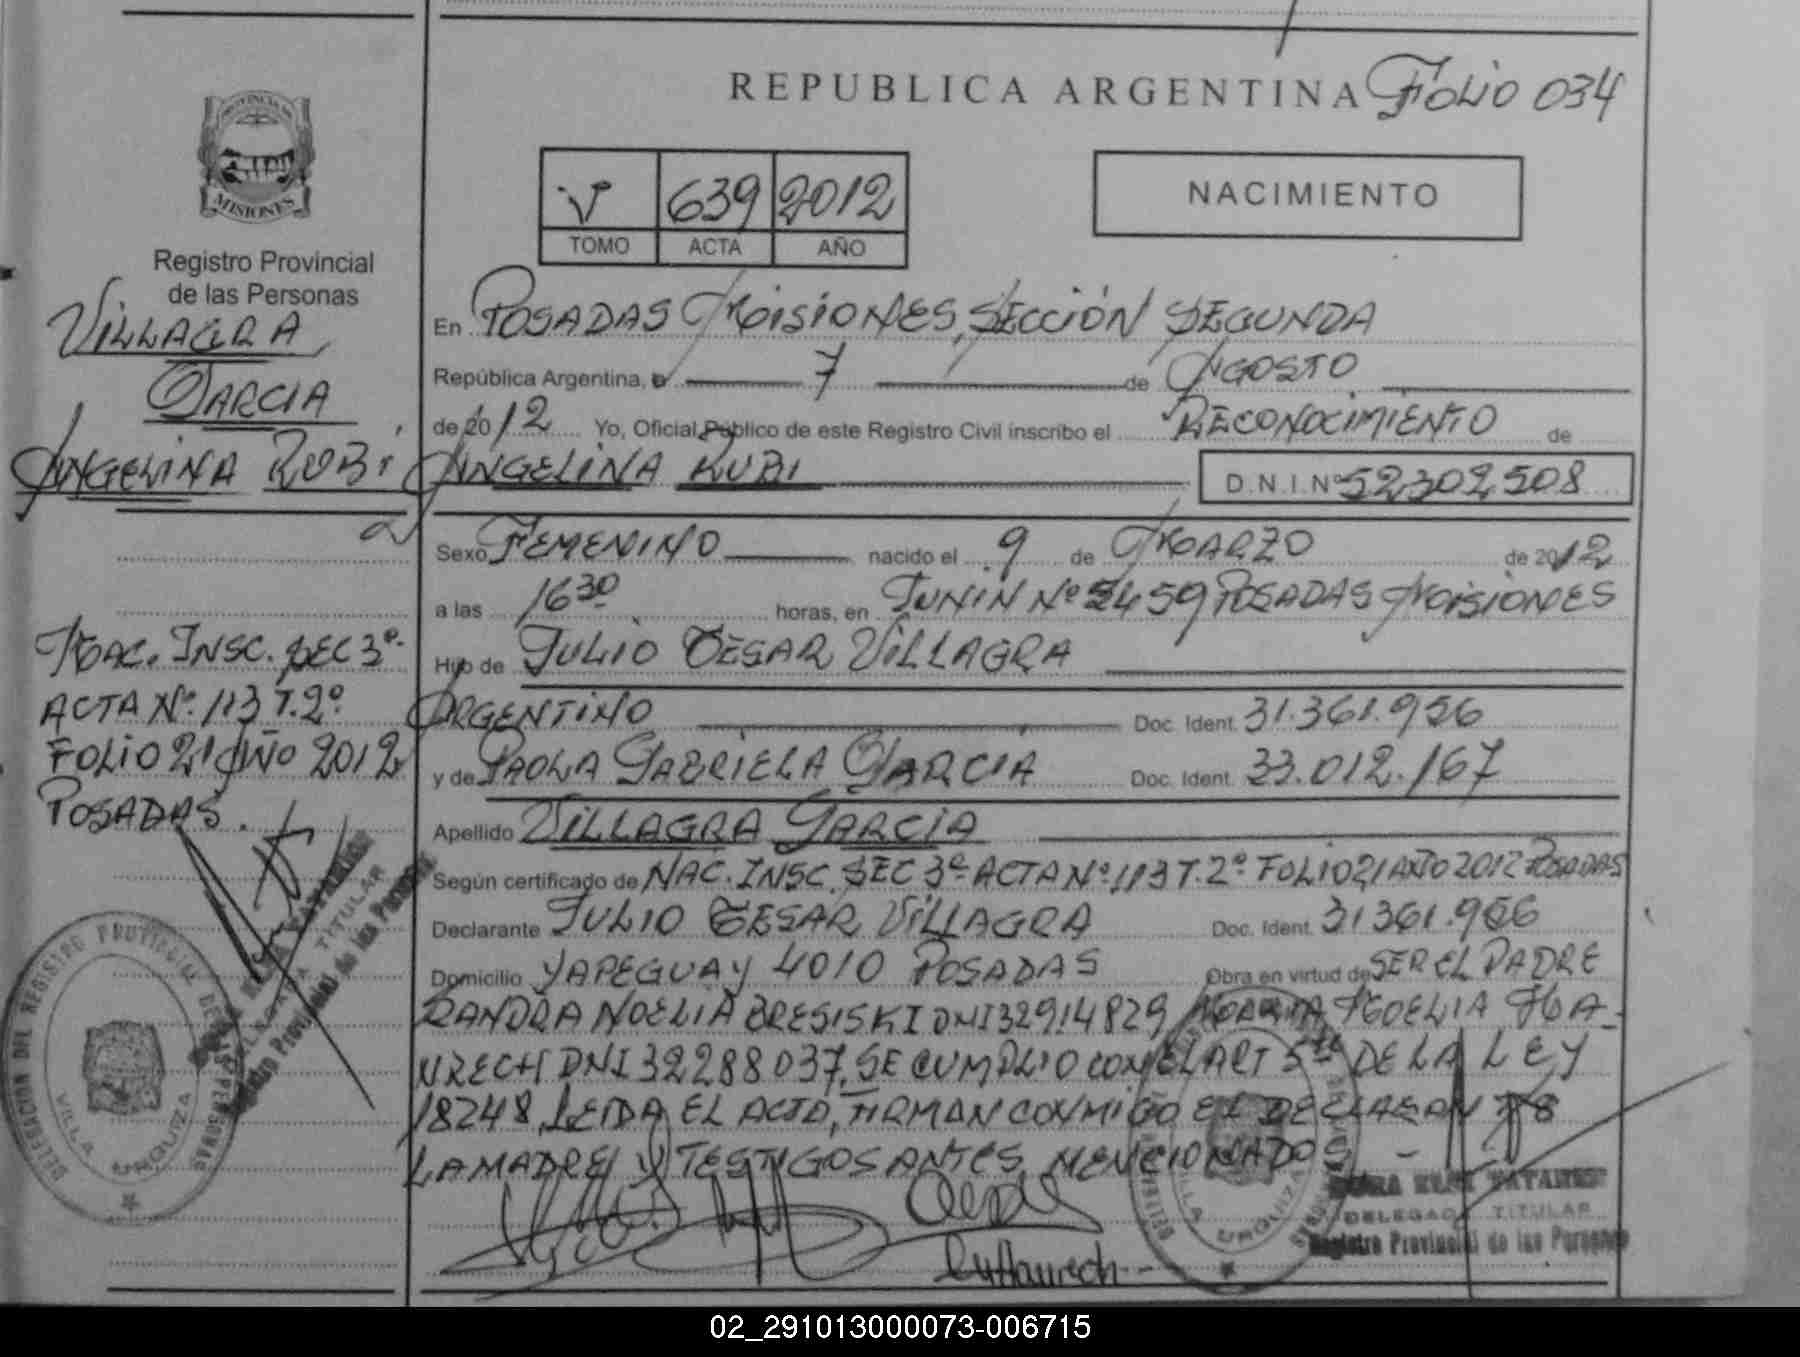 REPUBLICA ARGENTINA FOLIO 034
PROVINCIA DE
MISIONES
Registro Provincial
de las Personas
VILLAGRA
GARCIA
ANGELINA RUBI
NAC. INSC. SEC 3ª
ACTA Nº 113 T.2º
FOLIO 21 AÑO 2012
POSADAS.
V 639 2012
TOMO ACTA AÑO
NACIMIENTO
En POSADAS MISIONES, SECCIÓN SEGUNDA
República Argentina, a 7 de AGOSTO
de 2012 Yo, Oficial Público de este Registro Civil inscribo el RECONOCIMIENTO de
ANGELINA RUBI D.N.I.Nº 52302508
Sexo FEMENINO nacido el 9 de MARZO de 2012
a las 16 30 horas, en JUNIN Nº 2459 POSADAS MISIONES
Hijo de JULIO CESAR VILLAGRA
ARGENTINO Doc. Ident. 31.361.956
y de PAOLA GABRIELA GARCIA Doc. Ident. 33.012.167
Apellido VILLAGRA GARCIA
Según certificado de NAC. INSC. SEC 3ª ACTA Nº 113 T.2º FOLIO 21 AÑO 2012 POSADAS
Declarante JULIO CESAR VILLAGRA Doc. Ident. 31361.956
Domicilio YAPEGUAY 4010 POSADAS Obra en virtud de SER EL PADRE
NOELIA BRESISKI DNI 32914829 NOELIA HA-
URECH DNI 32288037, SE CUMPLIO CON EL ART 5to DE LA LEY
18248, LEIDA EL ACTA, FIRMAN CONMIGO EL DECLARANTE
LA MADRE Y TESTIGOS ANTES MENCIONADOS -
DELEGACION DEL REGISTRO PROVINCIAL DE LAS PERSONAS
VILLA URQUIZA
DELEGADA TITULAR
Registro Provincial de las Personas
VILLA URQUIZA
DELEGADA TITULAR
Registro Provincial de las Personas
02_291013000073-006715